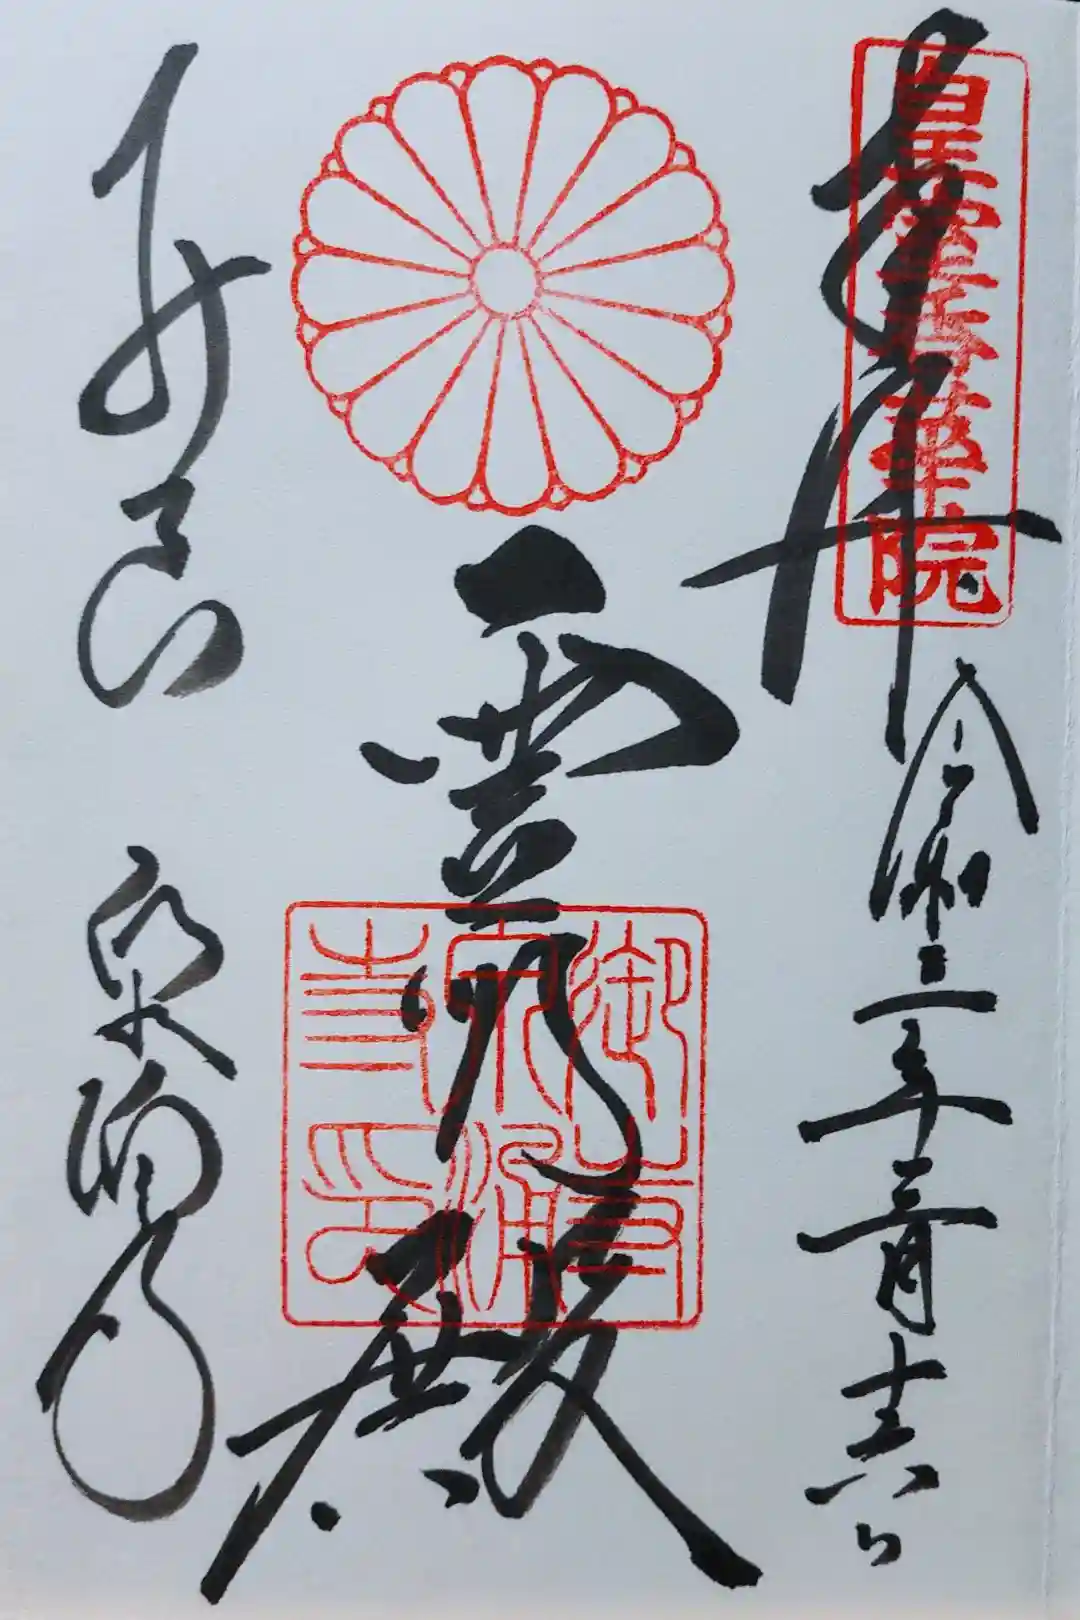 奉拝
皇室香華院
令和三年三月十六日
霊明殿
御寺
泉涌
寺印
みてら
泉涌寺